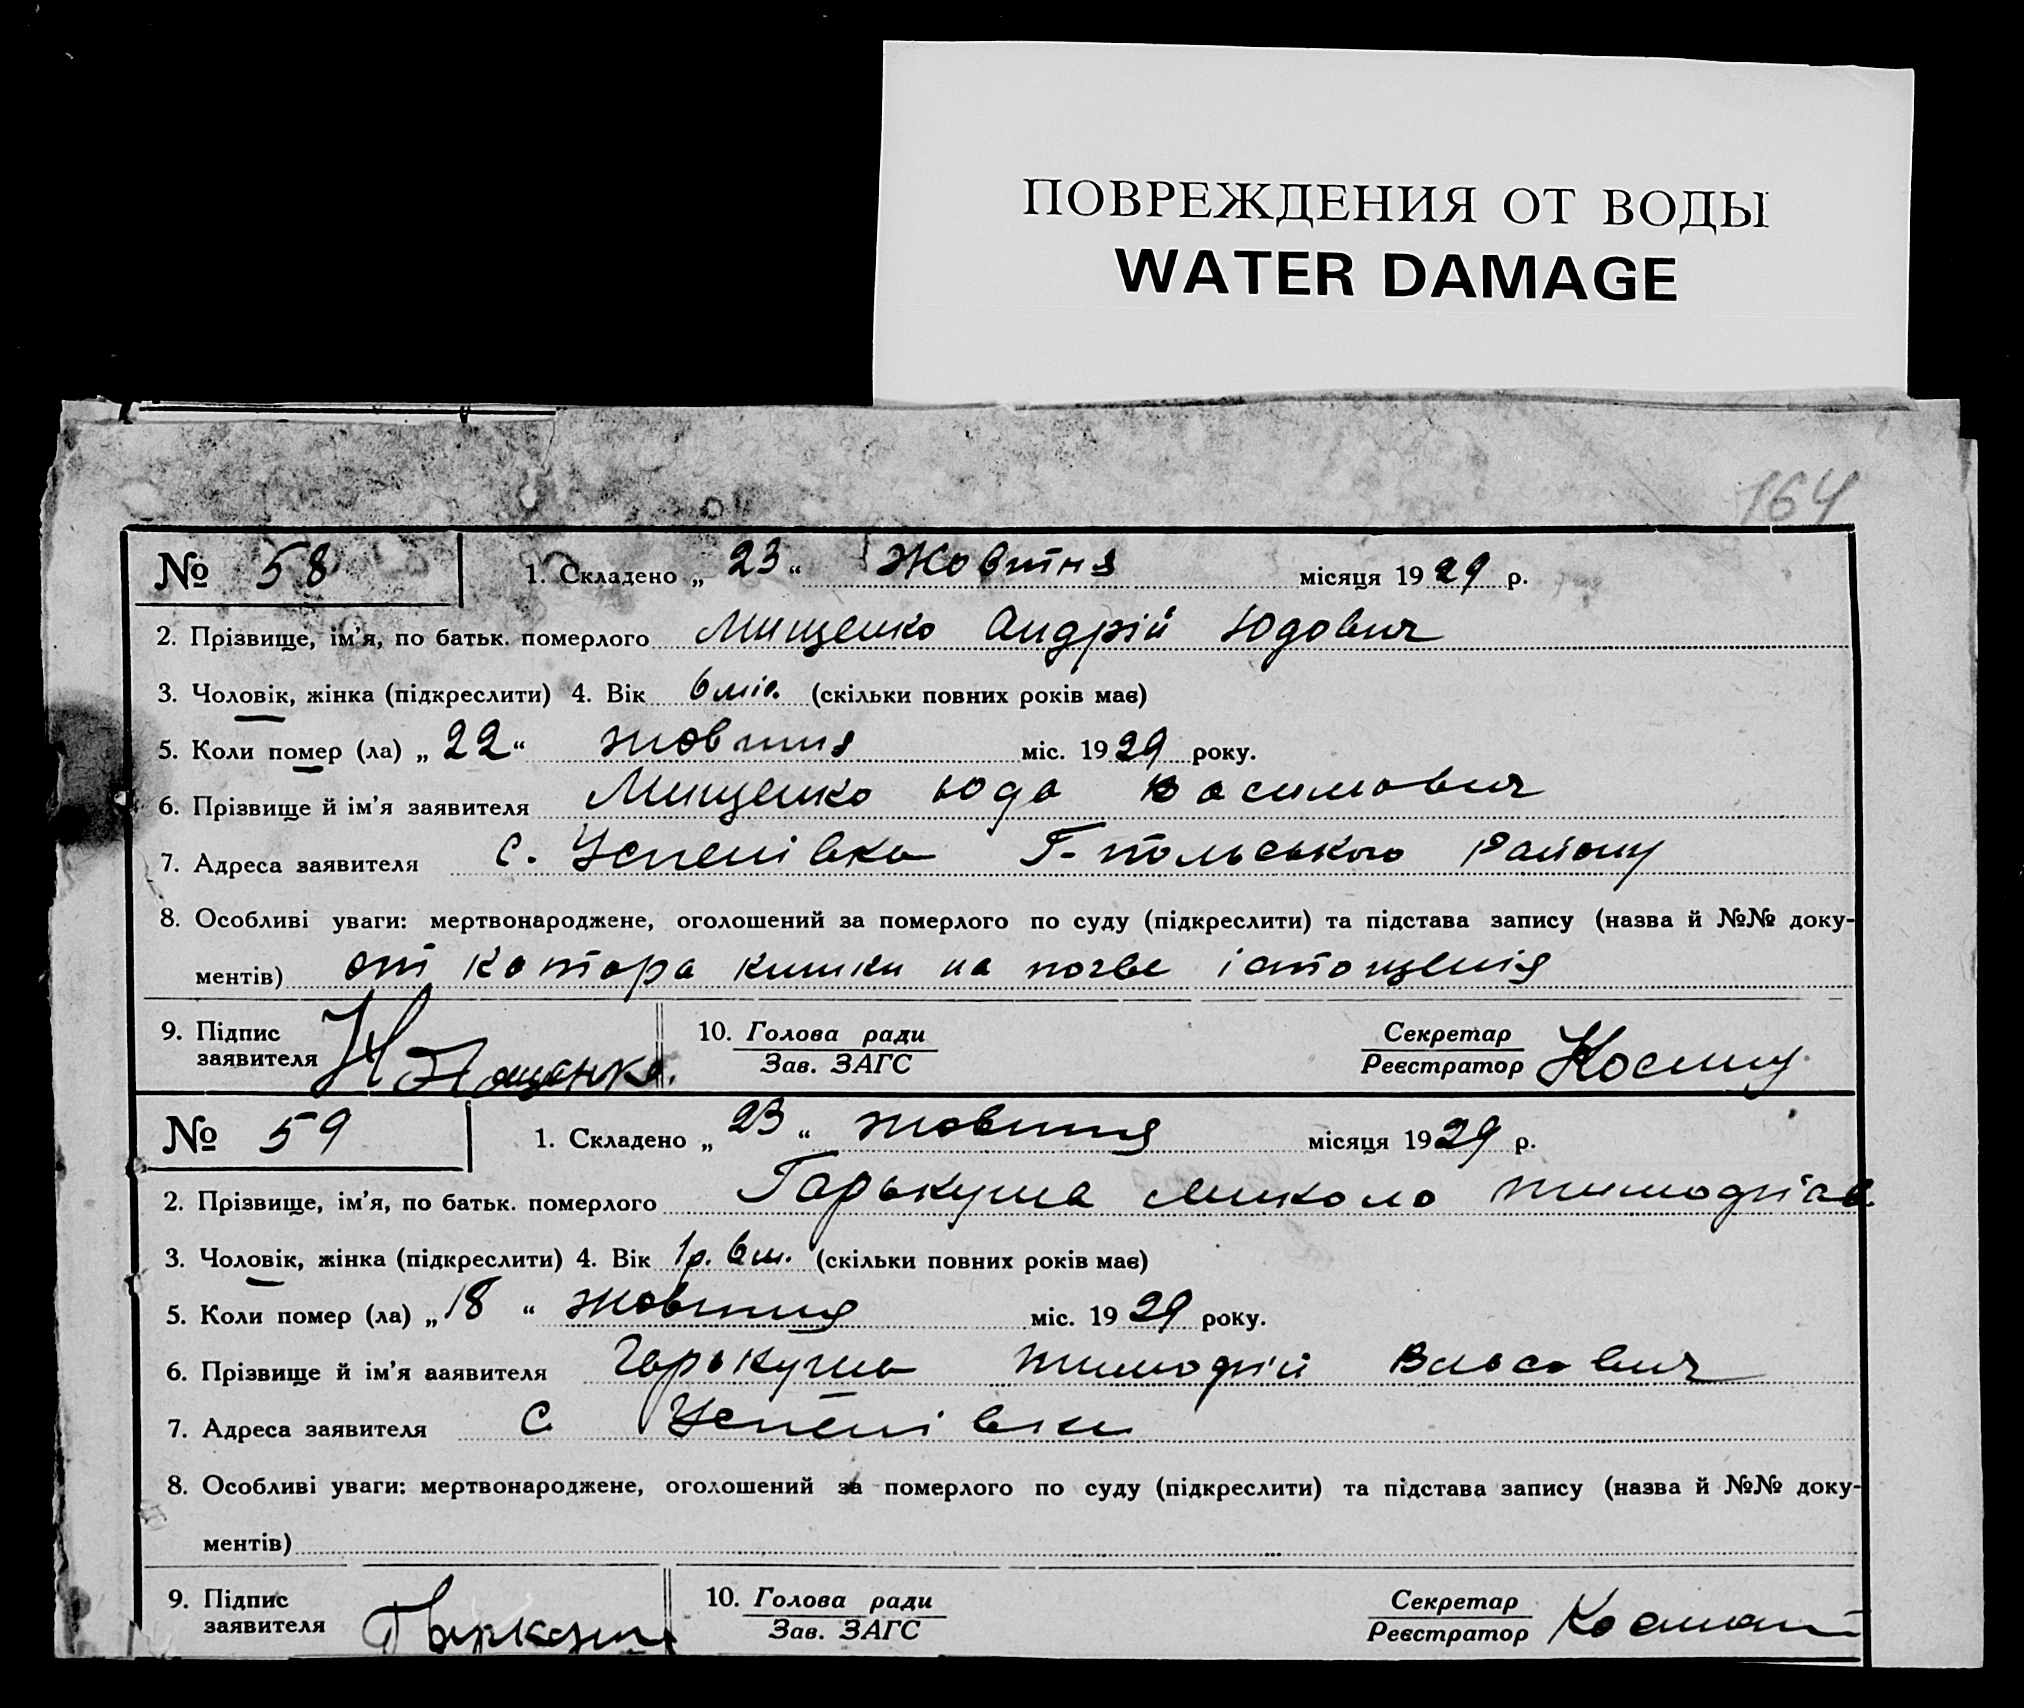 ПОВРЕЖДЕНИЯ ОТ ВОДЫ
WATER DAMAGE
164
№ 58 1. Складено „ 23 “ Жовтня місяця 1929 р.
2. Прізвище, ім'я, по батьк. померлого Мищенко Андрій Юдович
3. Чоловік, жінка (підкреслити) 4. Вік 6 міс. (скільки повних років має)
5. Коли помер (ла) „ 22 “ жовтня міс. 1929 року.
6. Прізвище й ім'я заявителя Мищенко Юда
7. Адреса заявителя с. Успенівка Г-польського Району
8. Особливі уваги: мертвонароджене, оголошений за померлого по суду (підкреслити) та підстава запису (назва й №№ доку-
ментів) от катара кишки на почве істощенія
9. Підпис 10. Голова ради Секретар
заявителя Зав. ЗАГС Реєстратор
№ 59 1. Складено „ 23 “ жовтня місяця 1929 р.
2. Прізвище, ім'я, по батьк. померлого Гарькуша Микола
3. Чоловік, жінка (підкреслити) 4. Вік 1р. 6м. (скільки повних років має)
5. Коли помер (ла) „ 18 “ жовтня міс. 1929 року.
6. Прізвище й ім'я ааявителя Гарькуша Тимофій Власович
7. Адреса заявителя с Успенівки
8. Особливі уваги: мертвонароджене, оголошений за померлого по суду (підкреслити) та підстава запису (назва й №№ доку-
ментів)
9. Підпис 10. Голова ради Секретар
заявителя Гаркуша Зав. ЗАГС Реєстратор